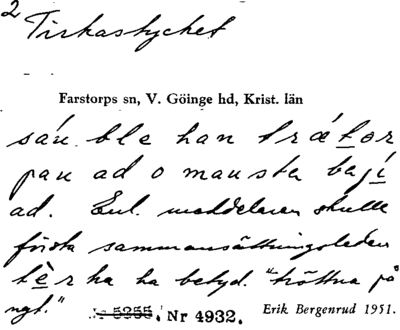 2
Tirkastycket
Farstorps sn, V. Göinge hd, Krist. län
sán ble han træter
pau ad o mausta bají
ad. Enl. meddelaren skulle
första sammansättningsleden
tèrka ha betyd. "tröttna på
ngt."
Nr 5255. Nr 4932. Erik Bergenrud 1951.